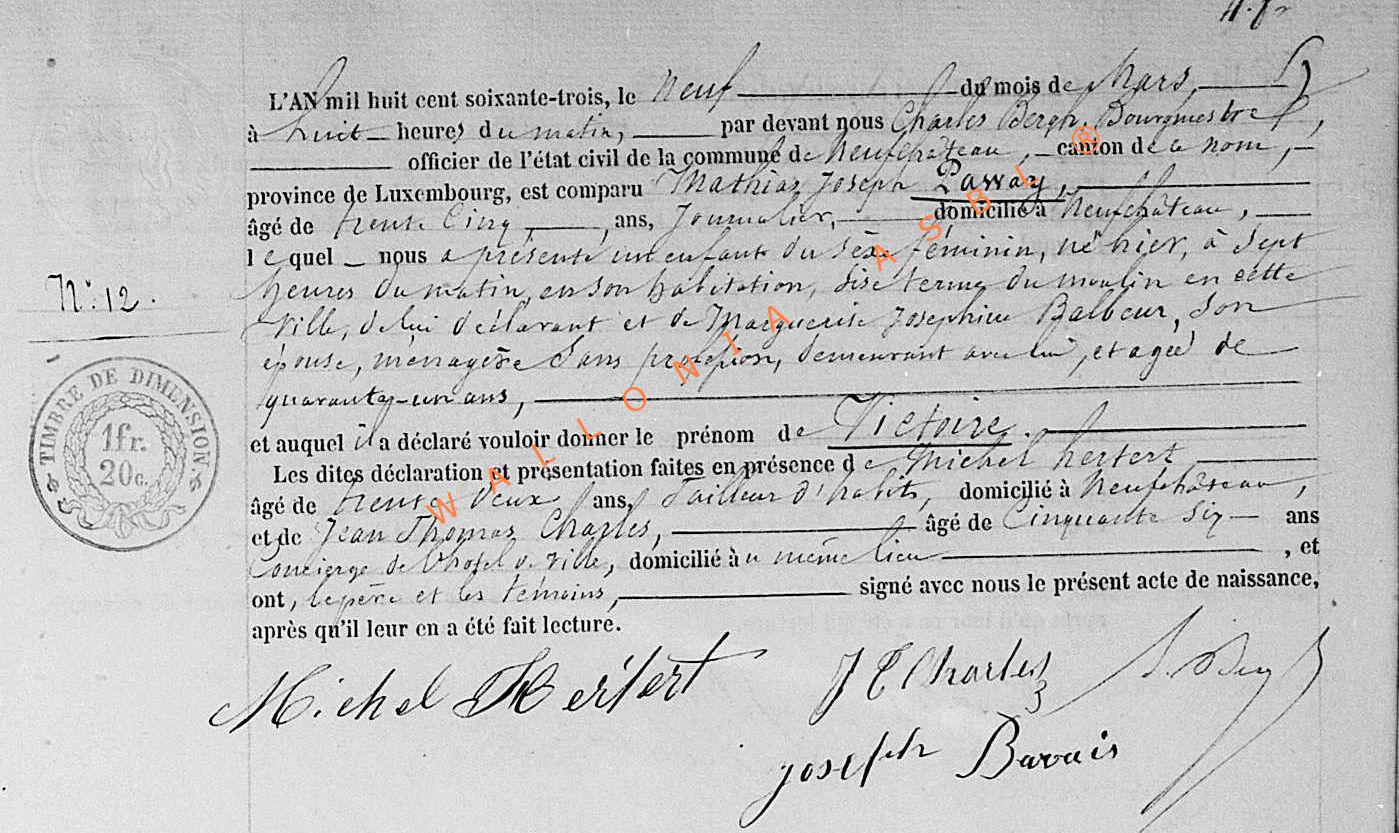 L'AN mil huit cent soixante-trois, le neuf du mois de Mars,
à huit heures du matin, par devant nous Charles Bergh. Bourgmestre,
officier de l'état civil de la commune de Neufchâteau, canton de ce nom,
province de Luxembourg, est comparu Mathias Joseph
âgé de trente Cinq, ans, Journalier, domicilié à Neufchâteau,
lequel nous a présenté un enfant du sexe féminin, né hier, à sept
heures du matin, en son habitation, sise terme du moulin en cette
ville, de lui déclarant et de Marguerite Josephine Balbeur, son
épouse, ménagère sans profession, demeurant avec lui, et agée de
quarante-un ans,
et auquel il a déclaré vouloir donner le prénom de Victoire.
Les dites déclaration et présentation faites en présence de Michel hertert
âgé de trente deux ans, Tailleur d'habits, domicilié à Neufchâteau,
N°: 12.
et de Jean Thomas Charles, âgé de Cinquante six ans
Concierge de l'hotel de Ville, domicilié au même lieu, et
ont, le père et les témoins, signé avec nous le présent acte de naissance,
après qu'il leur en a été fait lecture.
TIMBRE DE DIMENSION.
1fr.
20c.
Michel Hertert
J T Charles
Joseph Bavais
WALLONIA ASBL ®